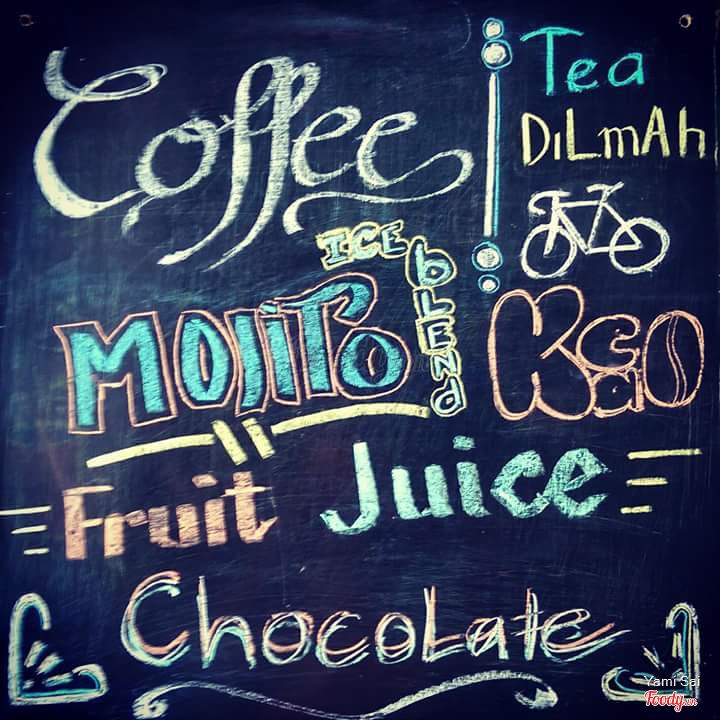 Coffee
Tea
DiLmAh
ICE
bLEND
MOJiTO
KaCaO
Fruit Juice
ChocoLate
Yami Sai
Foody.vn